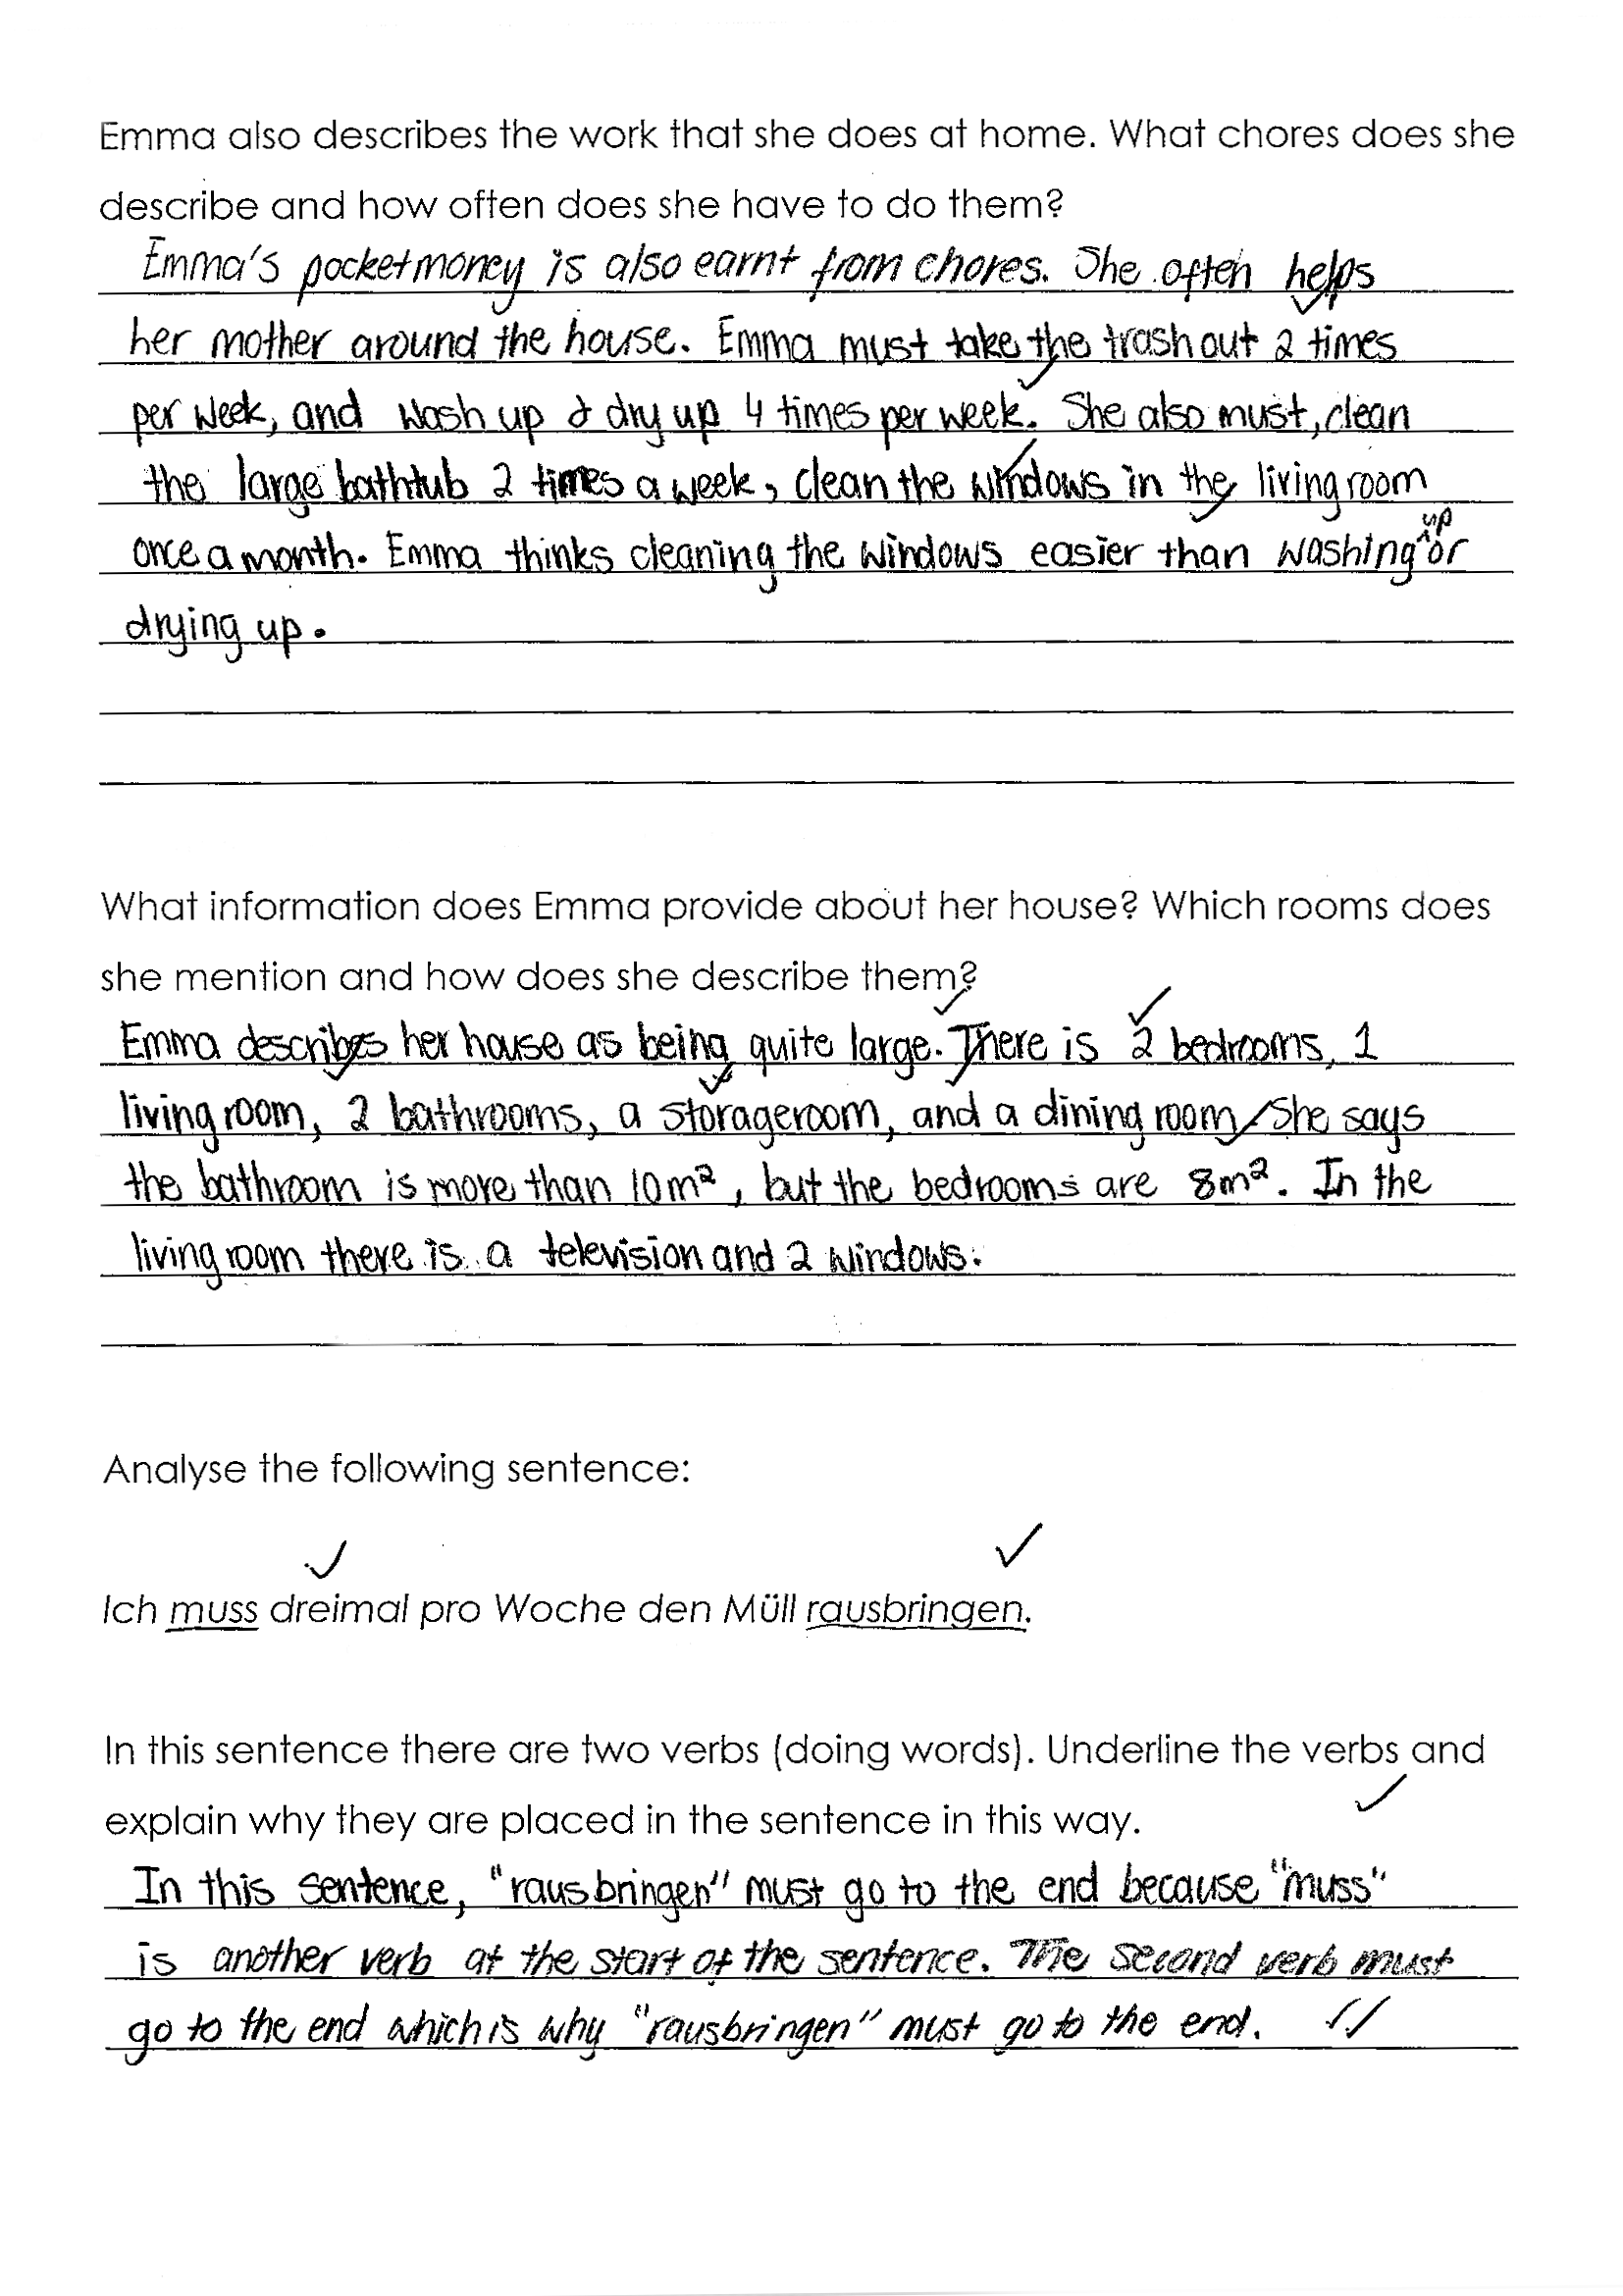 Emma also describes the work that she does at home. What chores does she
describe and how often does she have to do them?
Emma's pocketmoney is also earnt from chores. She often helps
her mother around the house. Emma must take the trash out 2 times
per week, and wash up & dry up 4 times per week. She also must, clean
the large bathtub 2 times a week, clean the windows in the living room
once a month. Emma thinks cleaning the windows easier than washing up or
drying up.
What information does Emma provide about her house? Which rooms does
she mention and how does she describe them?
Emma describes her house as being quite large. There is 2 bedrooms, 1
living room, 2 bathrooms, a storageroom, and a dining room. She says
the bathroom is more than 10m², but the bedrooms are 8m². In the
living room there is a television and 2 windows.
Analyse the following sentence:
Ich muss dreimal pro Woche den Müll rausbringen.
In this sentence there are two verbs (doing words). Underline the verbs and
explain why they are placed in the sentence in this way.
In this sentence, "rausbringen" must go to the end because "muss"
is another verb at the start of the sentence. The second verb must
go to the end which is why "rausbringen" must go to the end.